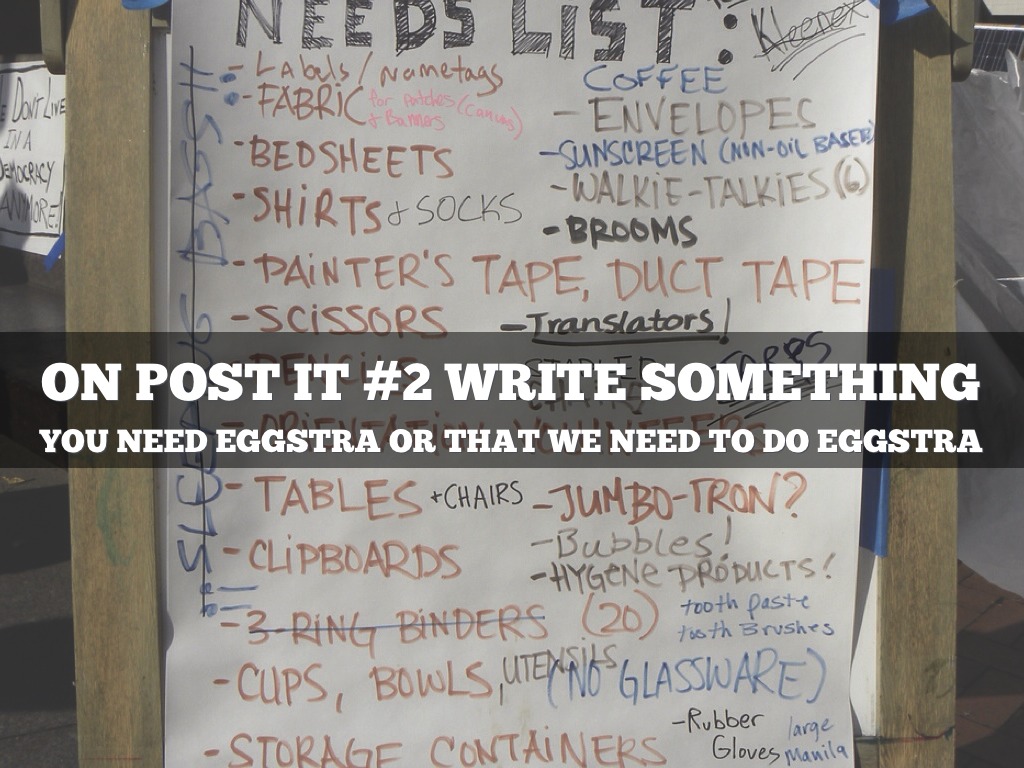 NEEDS LIST:
Kleenex
- Labels / Nametags
- FABRIC for patches (canvas)
- BEDSHEETS
- SHIRTS & SOCKS
- PAINTER'S TAPE, DUCT TAPE
- SCISSORS
COFFEE
- ENVELOPES
- SUNSCREEN (NON-OIL BASED)
- WALKIE-TALKIES (6)
- BROOMS
- Translators!
SLEEPING BAGS!!
DON'T LIVE
IN A
DEMOCRACY
ANYMORE!
ON POST IT #2 WRITE SOMETHING
YOU NEED EGGSTRA OR THAT WE NEED TO DO EGGSTRA
PENCILS
- ORIENTATION VOLUNTEERS
- TABLES + CHAIRS
- CLIPBOARDS
- 3-RING BINDERS (20)
- CUPS, BOWLS, UTENSILS (NO GLASSWARE)
- STORAGE CONTAINERS
- JUMBO-TRON?
- Bubbles!
- HYGENE PRODUCTS!
tooth paste
tooth Brushes
- Rubber
Gloves
large
Manila